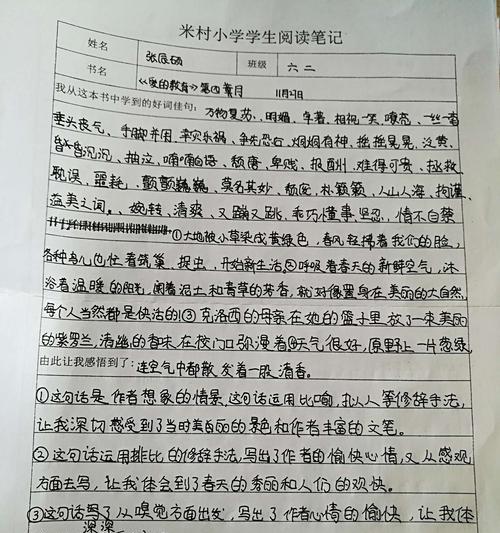 米村小学学生阅读笔记
姓名 张辰硕 班级 六二
书名 《爱的教育》第四 月 11月27日
我从这本书中学到的好词佳句：万物复苏、明媚、牵著、相视一笑、嘹亮、一丝一
垂头丧气、手脚并用、幸灾乐祸、争先恐后、炯炯有神、摇摇晃晃、泛黄、
昏昏沉沉、抽泣、喃喃自语、颓唐、卑贱、报酬、难得可贵、拯救
耽误、噩耗、颤颤巍巍、莫名其妙、杨 、朴 、人山人海、拘谨、
溢美之词。、婉转、清爽、又蹦又跳、乖巧懂事、坚忍、情不自禁
①大地被小草染成黄绿色，春风轻拂着我们的脸，
各种鸟儿也忙着筑巢、捉虫，开始新生活②呼吸着春天的新鲜空气，沐
浴着温暖的阳光，闻着泥土和青草的芳香，就好像置身在美丽的大自然，
每个人当然都是快活的③克洛西的母亲在她的篮子里放了一束美丽
的紫罗兰，清幽的香味在校门口弥漫着④天气很好，原野上一片葱绿，
由此让我感悟到了：连空气中都散发着一股清香。
①这句话是作者想象的情景，这句话运用比喻，拟人等修辞手法，
让我深切感受到了当时美丽的景色和作者丰富的文笔。
②这句话运用排比的修辞手法，写出了作者的愉快心情，又从感观
方面去写，让我体会到了春天的秀丽和人们的欢快。
③这句话写了从嗅觉方面出发，写出了作者心情的愉快，让我体
深深